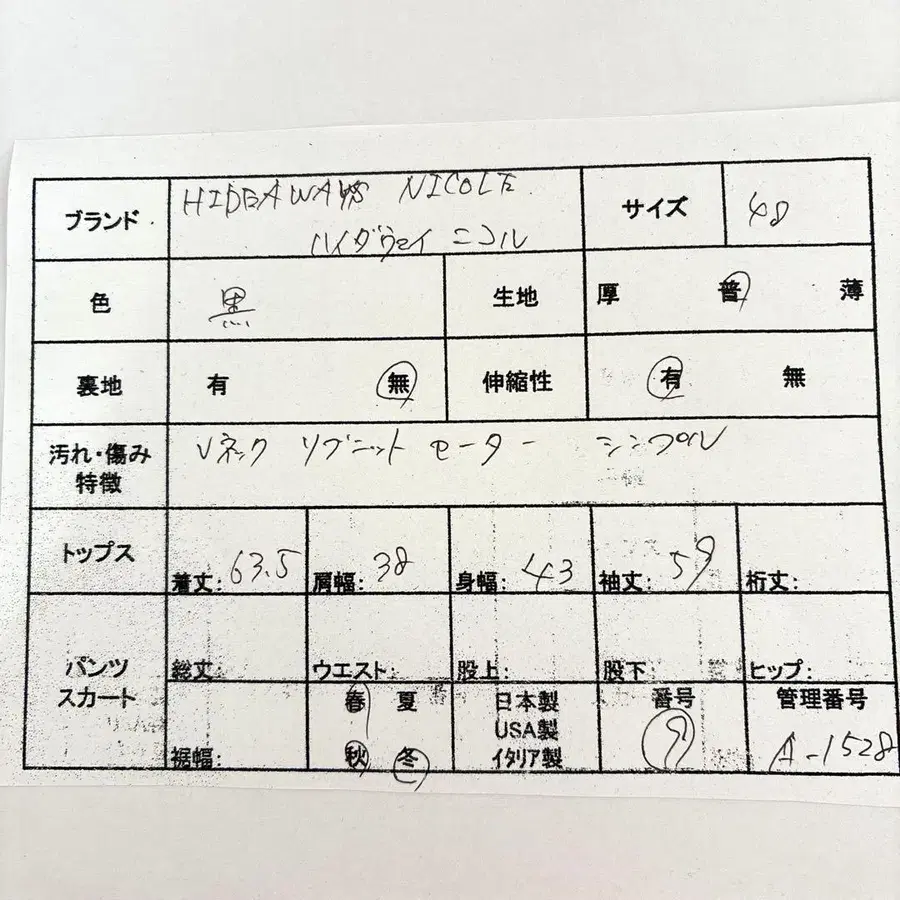 ブランド HIDEAWAYS NICOLE サイズ 48
ハイダウェイ ニコル
色 黒 生地 厚 普 薄
裏地 有 無 伸縮性 有 無
汚れ・傷み Vネック リブニット セーター シンプル
特徴
トップス 着丈: 63.5 肩幅: 38 身幅: 43 袖丈: 59 裄丈:
パンツ 総丈: ウエスト: 股上: 股下: ヒップ:
スカート 春 夏 日本製 番号 管理番号
USA製
裾幅: 秋 冬 イタリア製 9 A-1528